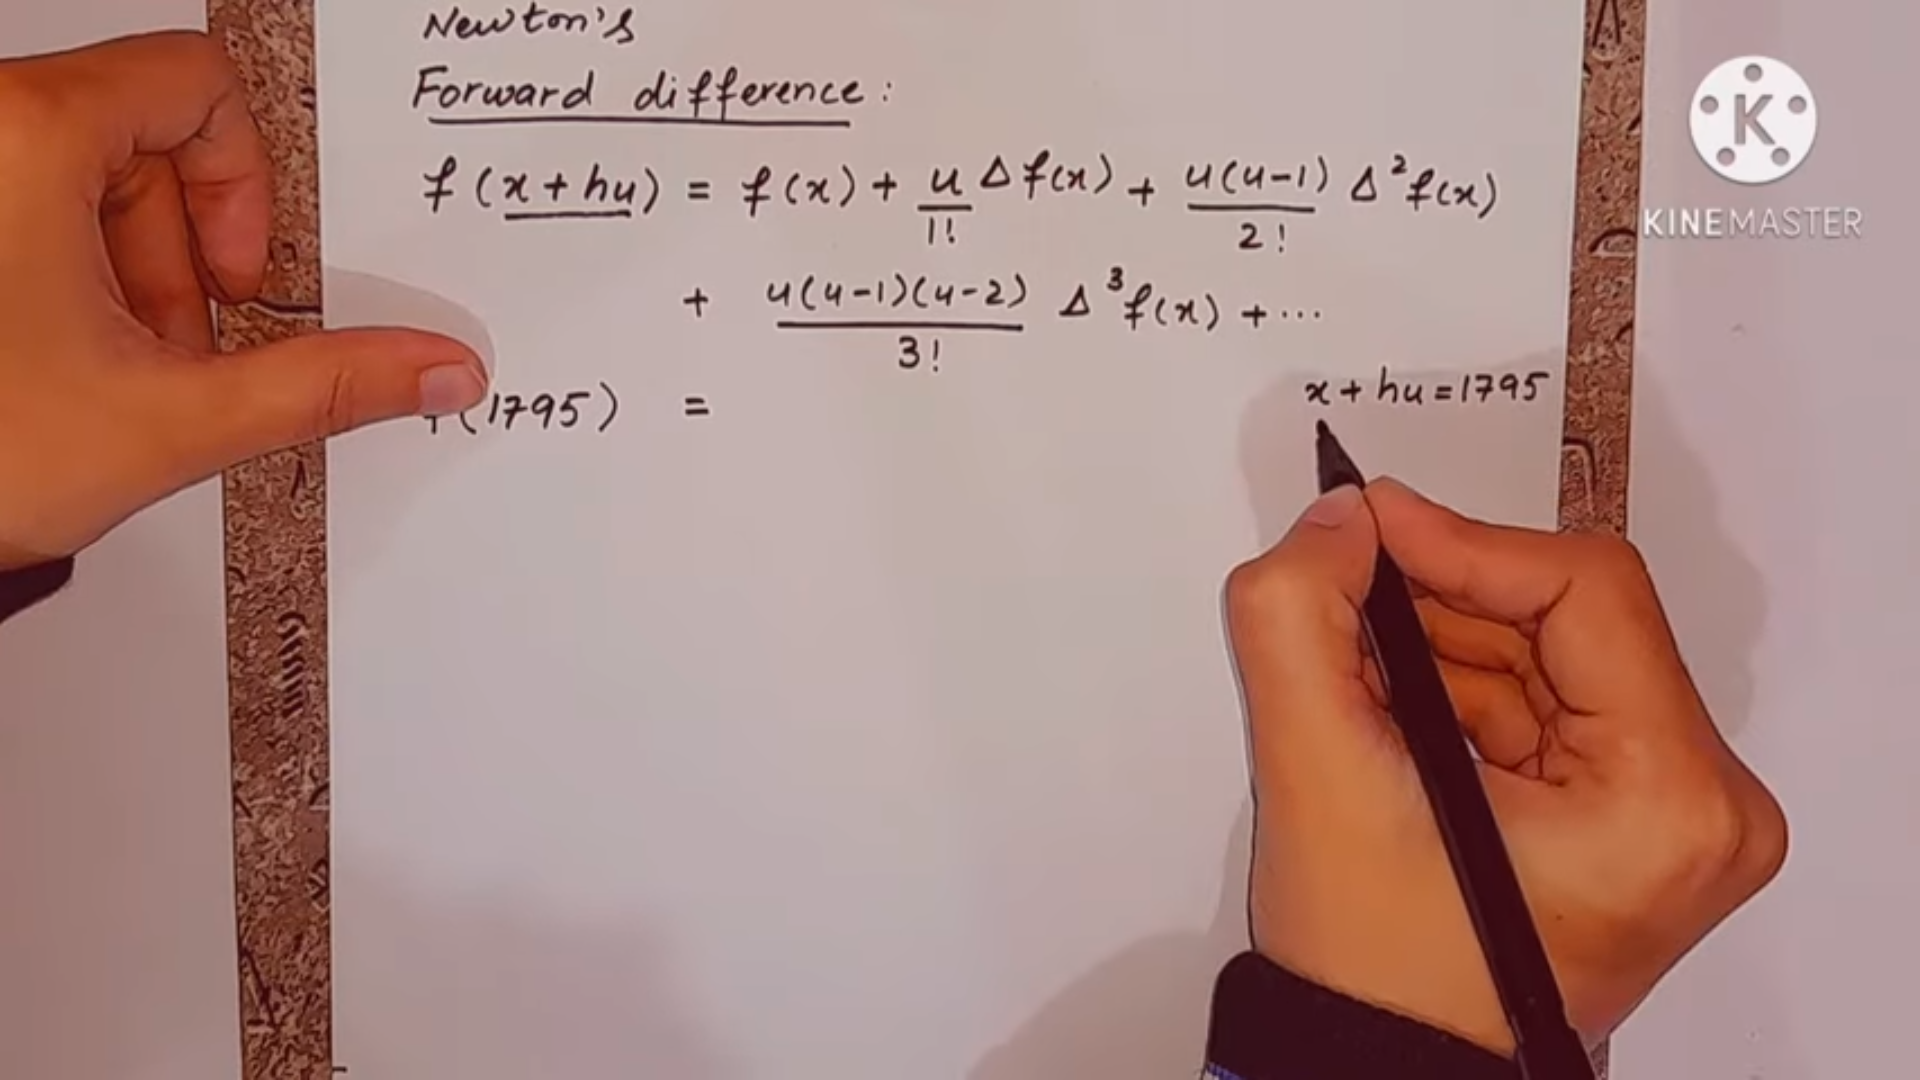 Newton's
Forward difference:
f(x+hu) = f(x) + u/1! Δf(x) + u(u-1)/2! Δ²f(x)
+ u(u-1)(u-2)/3! Δ³f(x) + ...
x+hu=1795
f(1795) =
K
KINEMASTER